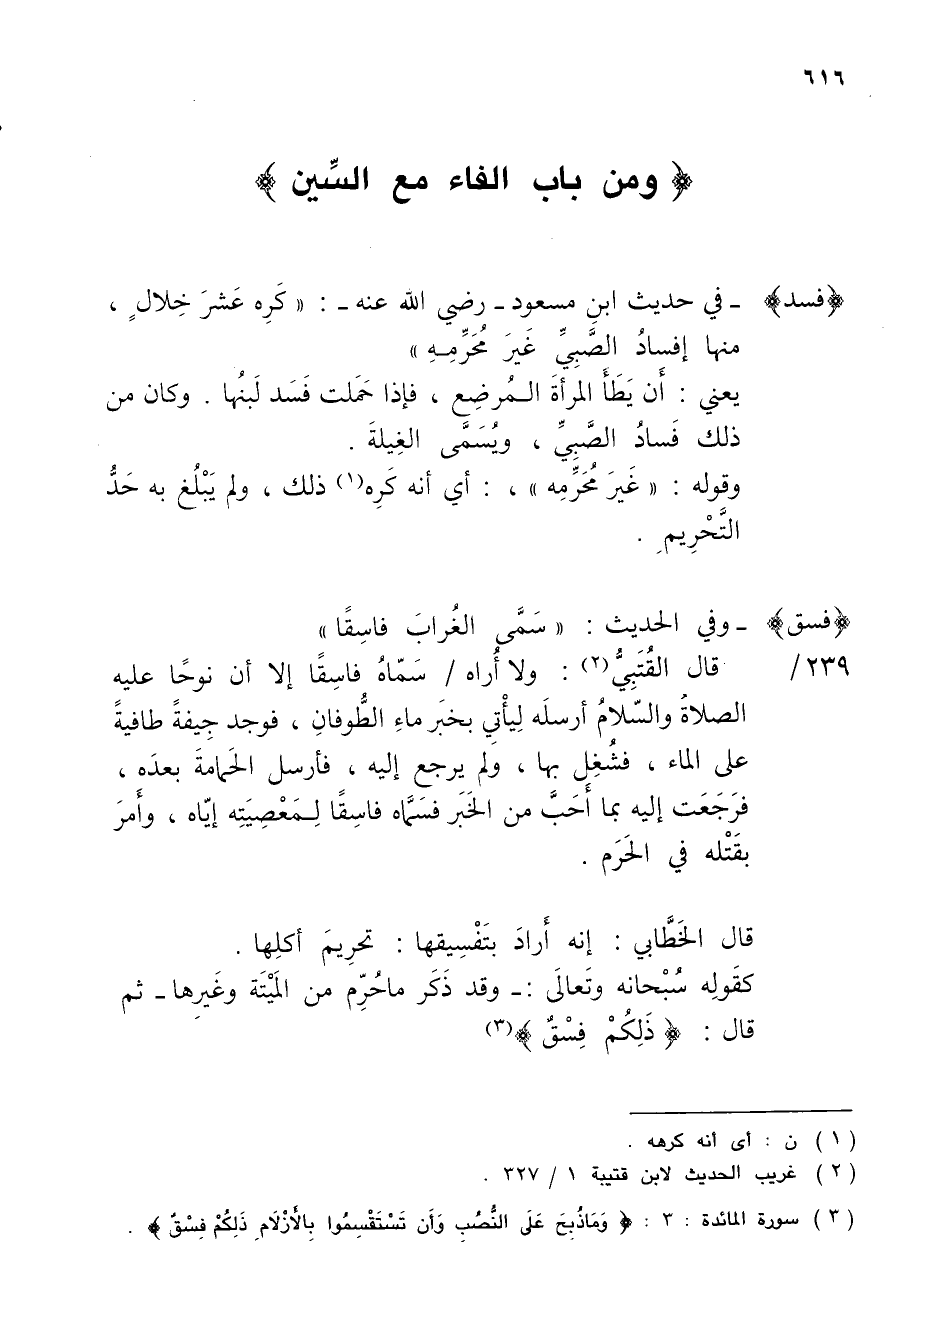 ٦١٦
﴿ ومن باب الفاء مع السِّين ﴾
﴿فسد﴾ ـ في حديث ابنِ مسعود ـ رضي الله عنه ـ : « كَرِه عَشرَ خِلال ٍ ،
منها إفسادُ الصَّبِيِّ غَيرَ مُحَرِّمِهِ »
يعني : أَن يَطَأَ المرأةَ المُرضِع ، فإذا حَملت فَسَد لَبنُها . وكان من
ذلك فَسادُ الصَّبِيِّ ، ويُسَمَّى الغِيلةَ .
وقوله : « غَيرَ مُحَرِّمِه » ، : أي أنه كَرِه(١) ذلك ، ولم يَبْلُغ به حَدُّ
التَّحْرِيم ِ .
﴿فسق﴾ ـ وفي الحديث : « سَمَّى الغُرابَ فاسِقًا »
٢٣٩/ قال القُتَبِيُّ(٢) : ولا أُراه / سَمّاهُ فاسِقًا إلا أن نوحًا عليه
الصلاةُ والسّلامُ أرسلَه لِيأْتي بخَبَر ماءِ الطُّوفانِ ، فوجد جِيفةً طافيةً
على الماء ، فشُغِل بها ، ولم يرجع إليه ، فأرسل الحَمامةَ بعدَه ،
فرَجَعَت إليه بما أَحَبَّ من الخَبَر فسَمَّاه فاسِقًا لِمَعْصِيَتِه إيّاه ، وأَمرَ
بقَتْله في الحَرَم .
قال الخَطَّابي : إنه أَرادَ بتَفْسِيقها : تحرِيمَ أكلِها .
كقَولِه سُبْحانه وتَعالَى :ـ وقد ذَكَر ماحُرِّم من المَيْتَة وغَيرِها ـ ثم
قال : ﴿ ذَلِكُمْ فِسْقٌ ﴾(٣)
(١) ن : أى أنه كرهه .
(٢) غريب الحديث لابن قتيبة ١ / ٣٢٧ .
(٣) سورة المائدة : ٣ : ﴿ وَمَاذُبِحَ عَلَى النُّصُبِ وَأَن تَسْتَقْسِمُوا بِالْأَزْلَامِ ذَلِكُمْ فِسْقٌ ﴾ .